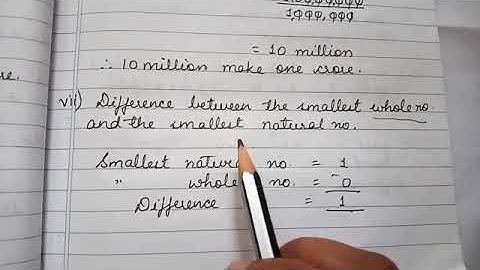 1,000,000
= 10 million
∴ 10 million make one crore.
vii) Difference between the smallest whole no.
and the smallest natural no.
Smallest natural no. = 1
" whole no. = -0
Difference = 1